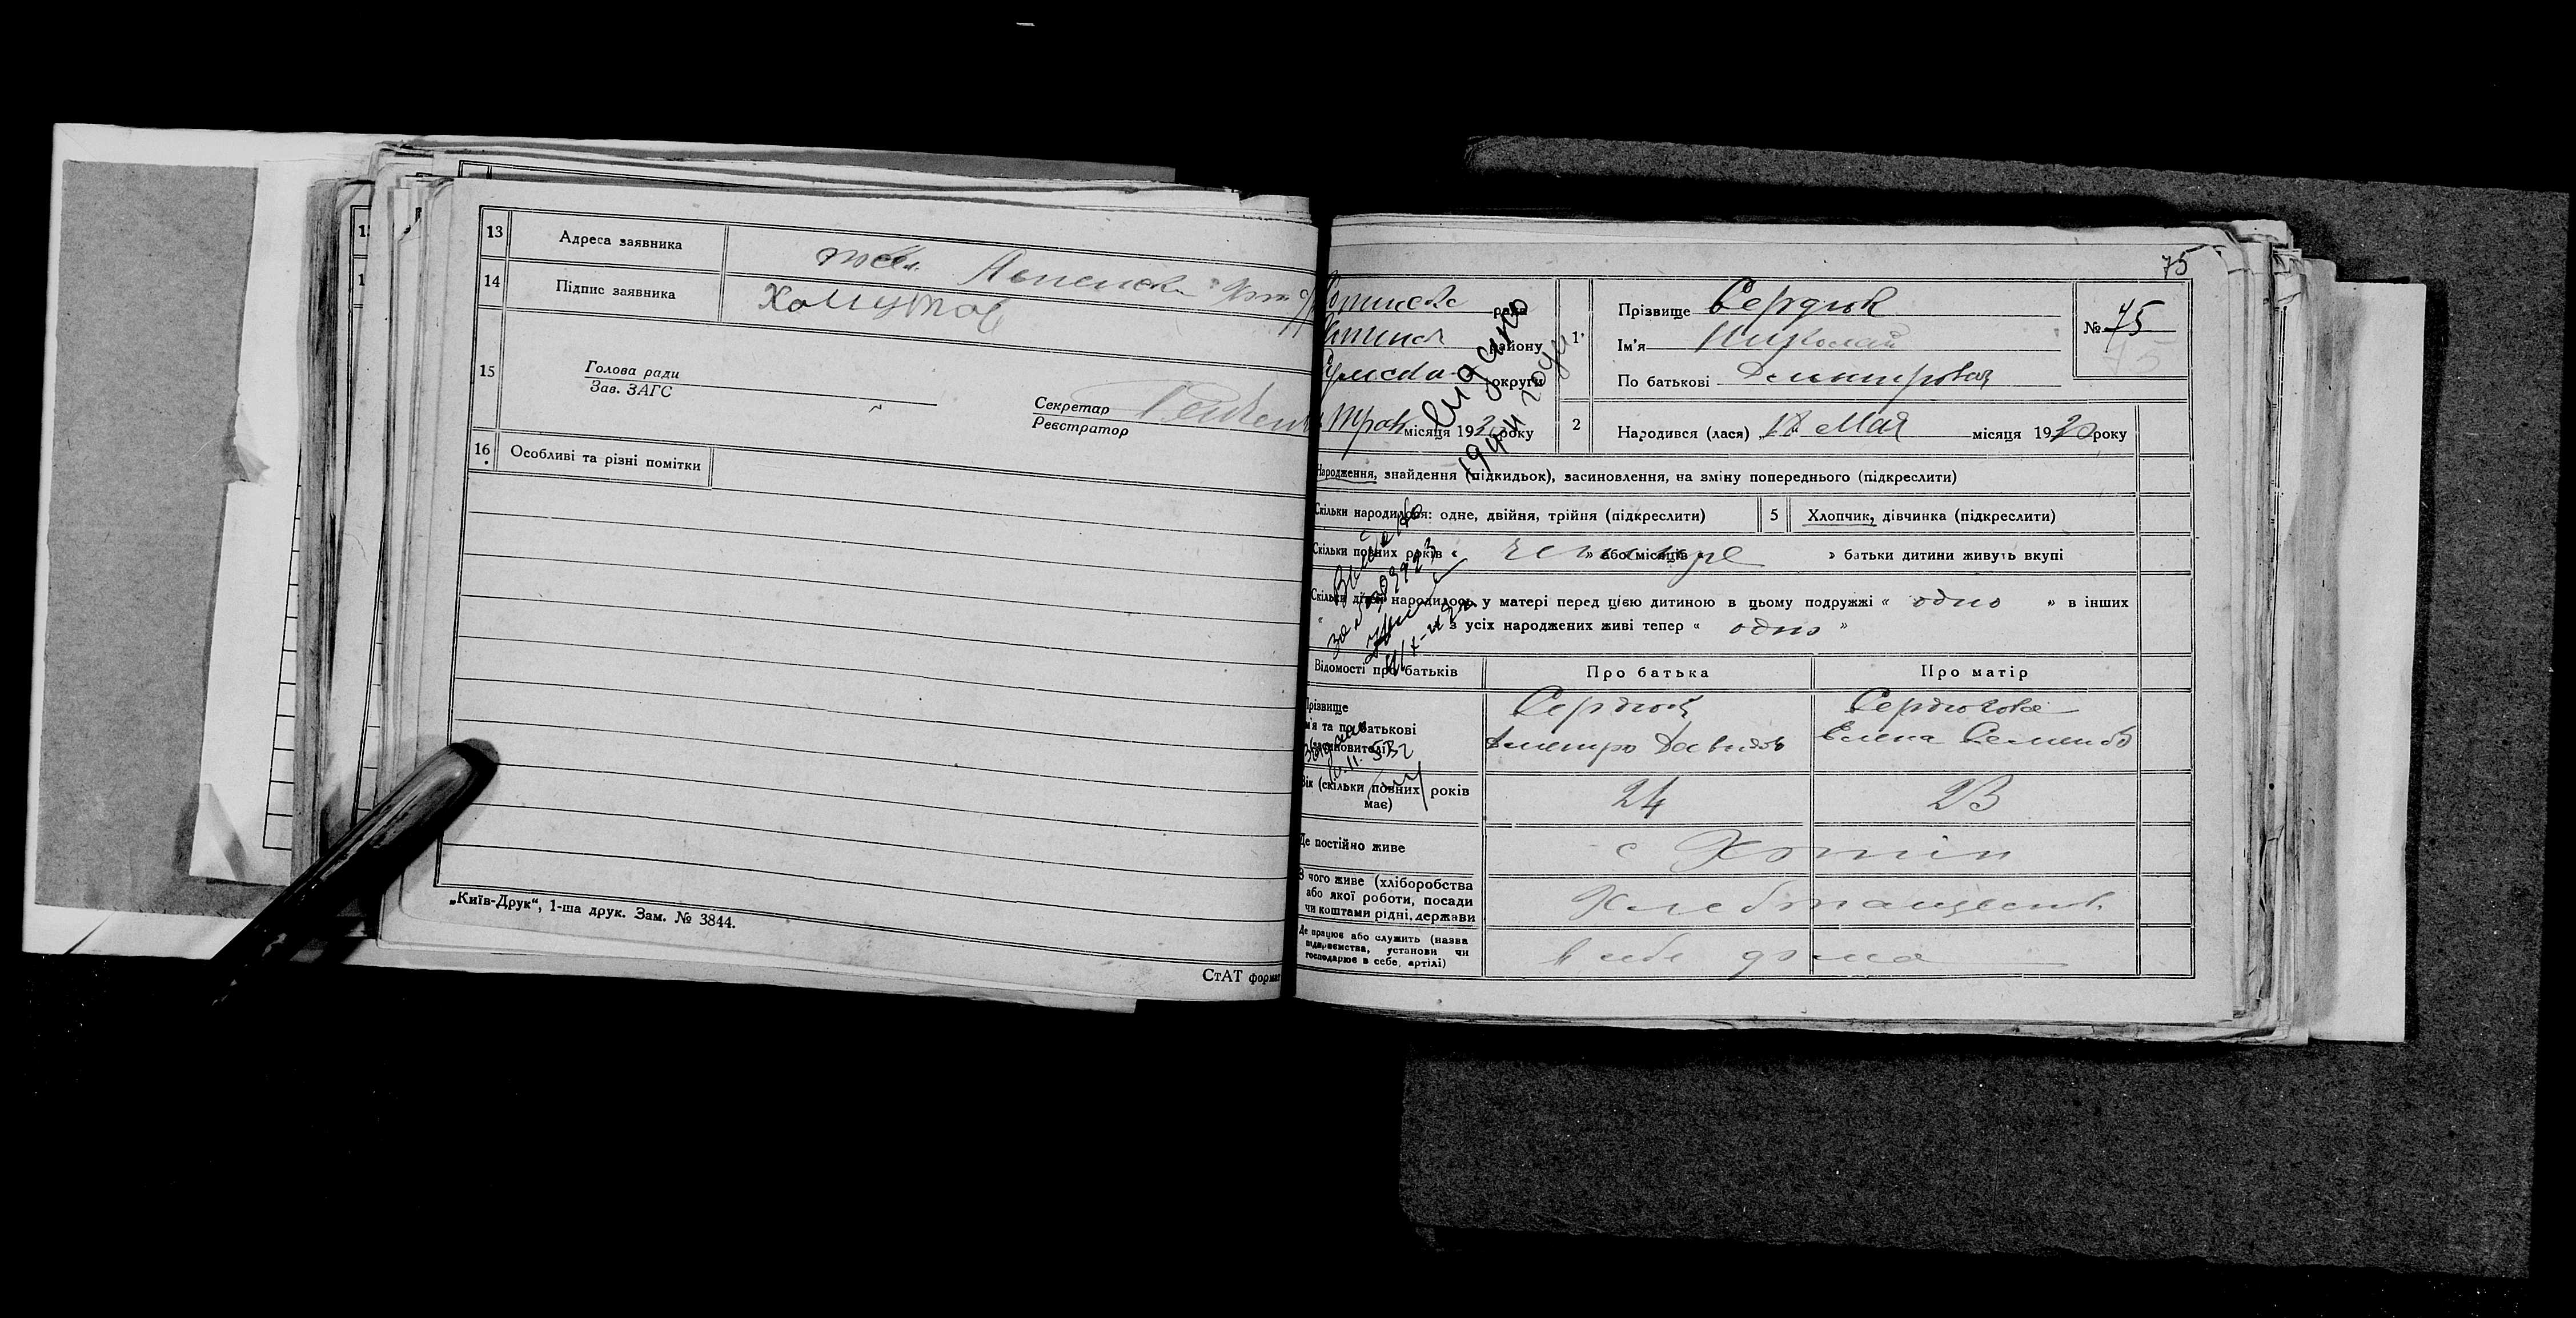 13 Адреса заявника
14 Підпис заявника Хомутов
15 Голова ради
Зав. ЗАГС
Секретар
Реєстратор
16 Особливі та різні помітки
„Київ-Друк“, 1-ша друк. Зам. № 3844.
СтАТ формат
75
рада
району
округи
місяця 1930 року
1 Прізвище Сердюк
Ім'я Николай
По батькові Дмитрович
№ 75
75
2 Народився (лася) 18 Мая місяця 1930 року
Народження, знайдення (підкидьок), засиновлення, на зміну попереднього (підкреслити)
Скільки народилося: одне, двійня, трійня (підкреслити) 5 Хлопчик, дівчинка (підкреслити)
Скільки повних років « четыре » або місяців « » батьки дитини живуть вкупі
Скільки дітей народилось у матері перед цією дитиною в цьому подружжі « одно » в інших
« з усіх народжених живі тепер « одно »
Відомості про батьків Про батька Про матір
Прізвище Сердюк Сердюкова
ім'я та по батькові Дмитро Давидов Елена Семенов
(засновителі)
Вік (скільки повних років має) 24 23
Де постійно живе с Хотін
З чого живе (хліборобства
або якої роботи, посади
чи коштами рідні, держави Хлебпашест
Де працює або служить (назва
підприємства, установи чи
господарює в себе, артілі) в себе дома
видано
1944 году